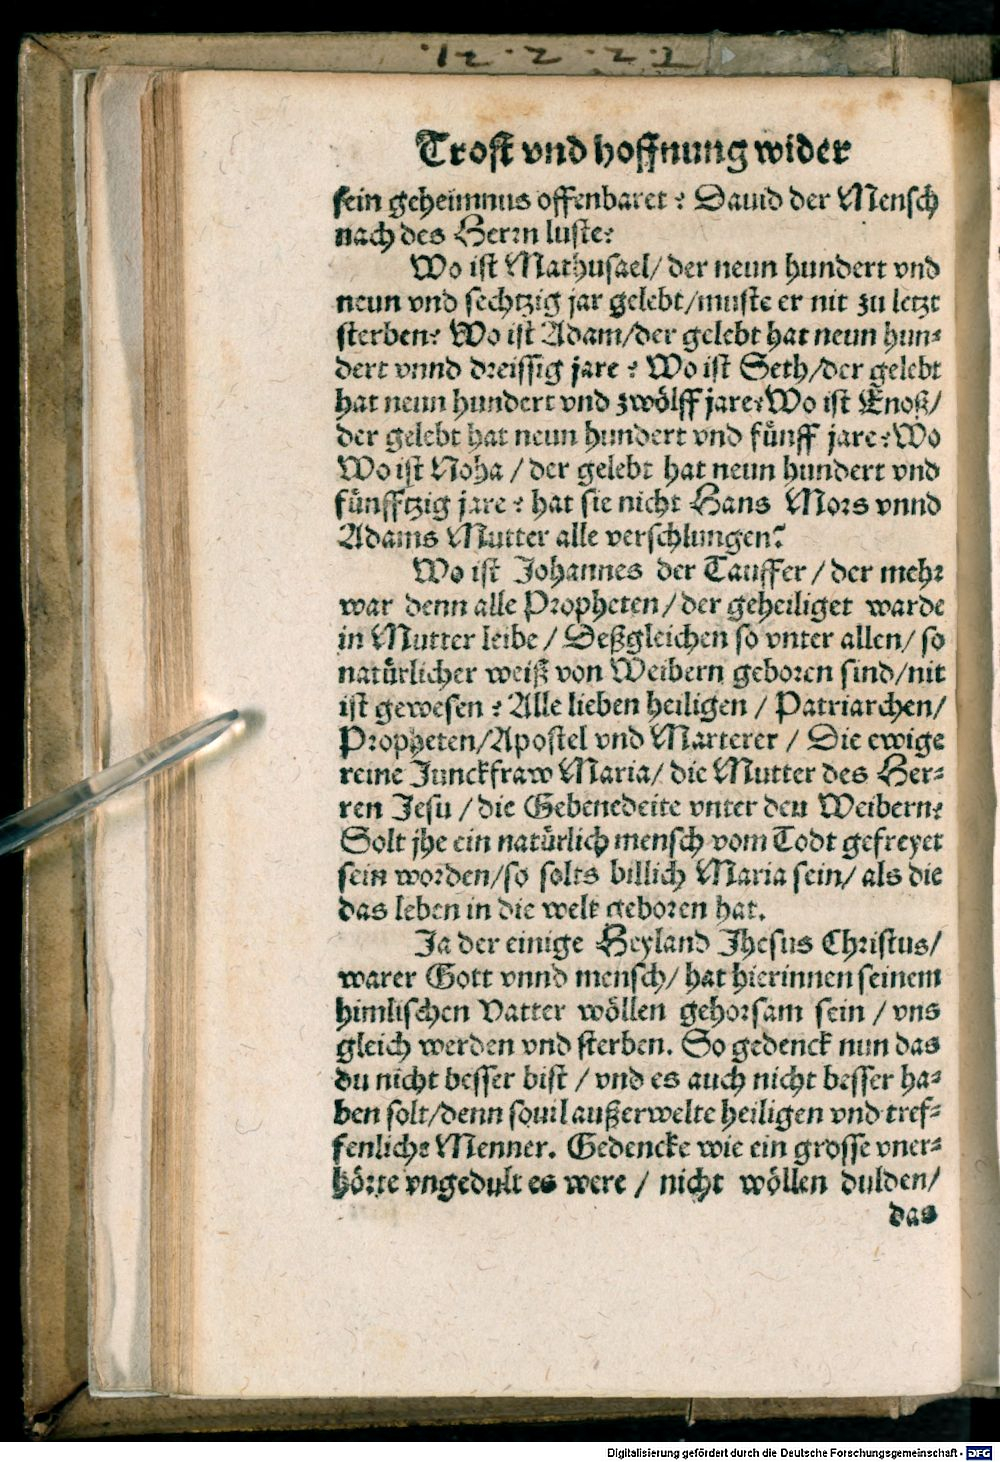 Trost vnd hoffnung wider
sein geheimnus offenbaret? Dauid der Mensch
nach des Herrn luste?
Wo ist Mathusael/ der neun hundert vnd
neun vnd sechtzig jar gelebt/muste er nit zu letzt
sterben? Wo ist Adam/der gelebt hat neun hun-
dert vnnd dreissig jare? Wo ist Seth/der gelebt
hat neun hundert vnd zwölff jare? Wo ist Enoß/
der gelebt hat neun hundert vnd fünff jare? Wo
Wo ist Noha / der gelebt hat neun hundert vnd
fünfftzig jare? hat sie nicht Hans Mors vnnd
Adams Mutter alle verschlungen?
Wo ist Johannes der Tauffer / der mehr
war denn alle Propheten / der geheiliget warde
in Mutter leibe / Deßgleichen so vnter allen/ so
natürlicher weiß von Weibern geboren sind/nit
ist gewesen? Alle lieben heiligen / Patriarchen/
Propheten/Apostel vnd Marterer / Die ewige
reine Junckfraw Maria/ die Mutter des Her-
ren Jesu / die Gebenedeite vnter den Weibern?
Solt jhe ein natürlich mensch vom Todt gefreyet
sein worden/so solts billich Maria sein/ als die
das leben in die welt geboren hat.
Ja der einige Heyland Jhesus Christus/
warer Gott vnnd mensch/ hat hierinnen seinem
himlischen Vatter wöllen gehorsam sein / vns
gleich werden vnd sterben. So gedenck nun das
du nicht besser bist / vnd es auch nicht besser ha-
ben solt/denn souil außerwelte heiligen vnd tref-
fenliche Menner. Gedencke wie ein grosse vner-
hörte vngedult es were / nicht wöllen dulden/
das
Digitalisierung gefördert durch die Deutsche Forschungsgemeinschaft - DFG